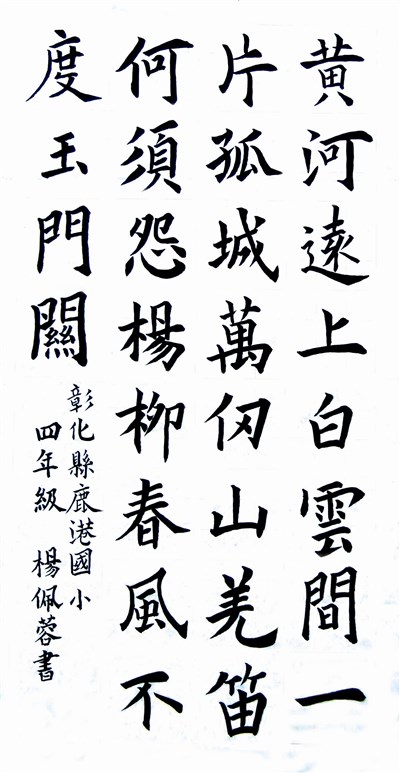 黄河遠上白雲間一
片孤城萬仞山羌笛
何須怨楊柳春風不
度玉門關
彰化縣鹿港國小
四年級 楊佩蓉書